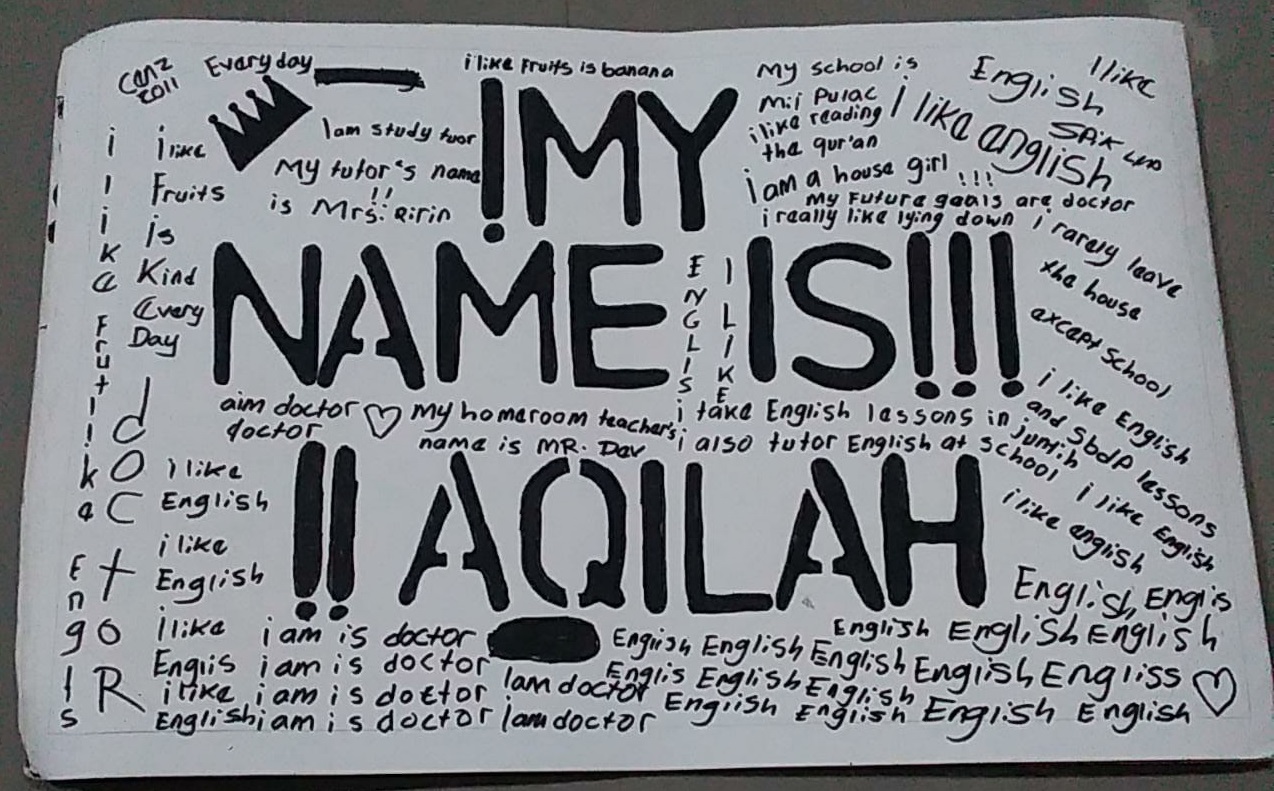 Canz
2011
Everyday
i like Fruits is banana
My school is
Mil Pulac
i like reading
the qur'an
i am a house girl !!!
My Future goals are doctor
i really like lying down
I like
English
I like english
i like
Fruits
is
Kind
Every
Day
I am study tuor
My tutor's name
is Mrs. Ririn
!MY
NAME IS!!!
ENGLIS
I LIKE
i rarely leave
the house
except School
i like English
and SbdP lessons
i like English
i like english
aim doctor
doctor
my homeroom teacher's
name is MR. Dav
i take English lessons in jumih
i also tutor English at School
!! AQILAH
i like Frut
I like Englis
doctoR
i like
English
i like
English
i like
Englis
i like
English
i am is doctor
i am is doctor
i am is doctor
i am is doctor
I am doctor
I am doctor
English Englis
English English English
English English English English Engliss
Englis English English
English English English English